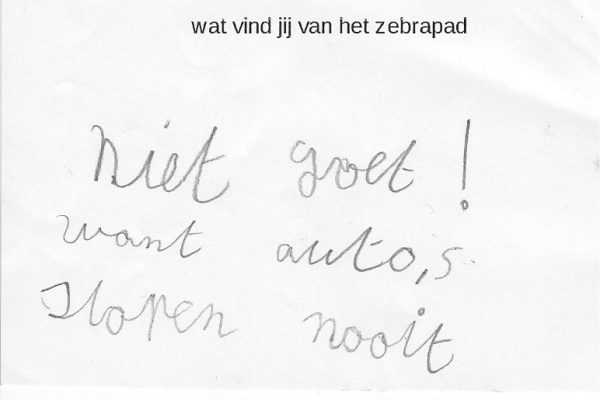 wat vind jij van het zebrapad
niet goet !
want auto,s
slopen nooit